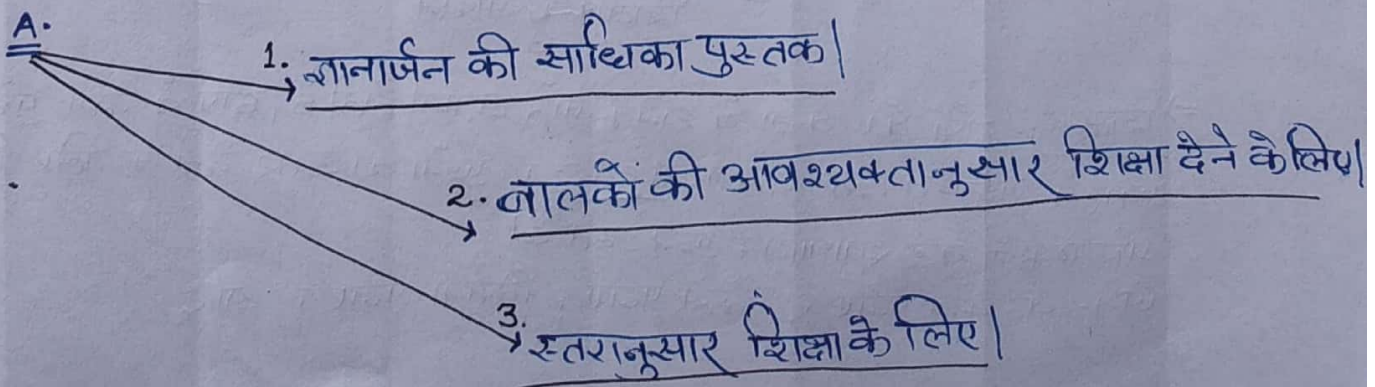 A.
1. ज्ञानार्जन की साधिका पुस्तक|
2. बालकों की आवश्यक्तानुसार शिक्षा देने के लिए|
3. स्तरानुसार शिक्षा के लिए|